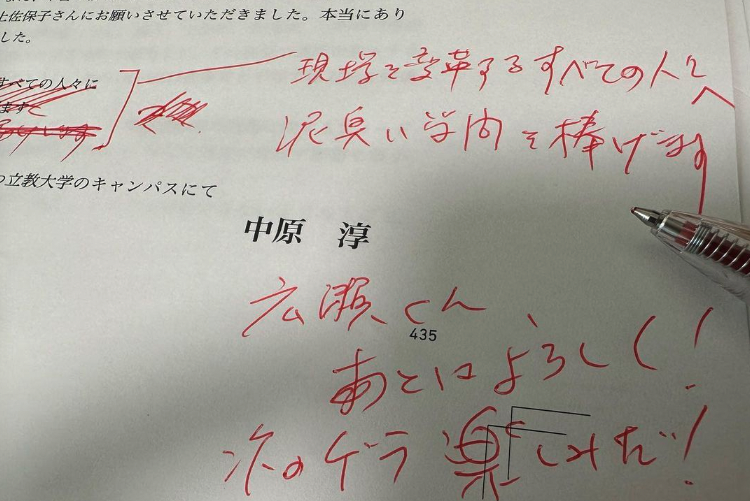 七佐保子さんにお願いさせていただきました。本当にあり
した。
すべての人々に
ます
現場を変革するすべての人々へ
泥臭い学問を捧げます
立教大学のキャンパスにて
中原 淳
広瀬くん、
435
あとはよろしく!
次のゲラ楽しみだ!